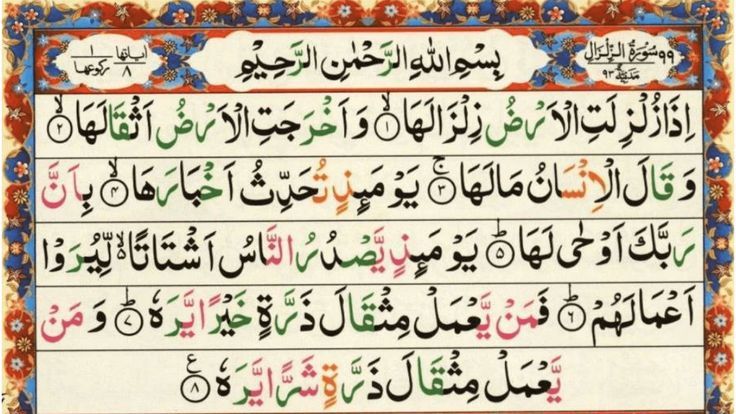 ٩٩ سُوْرَةُ الزِّلْزَالِ مَدَنِيَّةٌ ٩٣
بِسْمِ اللّٰهِ الرَّحْمٰنِ الرَّحِيْمِ
اٰيَاتُهَا ٨ رُكُوْعُهَا ١
اِذَا زُلْزِلَتِ الْاَرْضُ زِلْزَالَهَا ۙ﴿١﴾ وَاَخْرَجَتِ الْاَرْضُ اَثْقَالَهَا ۙ﴿٢﴾
وَقَالَ الْاِنْسَانُ مَا لَهَا ۚ﴿٣﴾ يَوْمَئِذٍ تُحَدِّثُ اَخْبَارَهَا ۙ﴿٤﴾ بِاَنَّ
رَبَّكَ اَوْحٰى لَهَا ؕ﴿٥﴾ يَوْمَئِذٍ يَّصْدُرُ النَّاسُ اَشْتَاتًا ۙ۬ لِّيُرَوْا
اَعْمَالَهُمْ ؕ﴿٦﴾ فَمَنْ يَّعْمَلْ مِثْقَالَ ذَرَّةٍ خَيْرًا يَّرَهٗ ؕ﴿٧﴾ وَمَنْ
يَّعْمَلْ مِثْقَالَ ذَرَّةٍ شَرًّا يَّرَهٗ ﴿٨﴾ ع